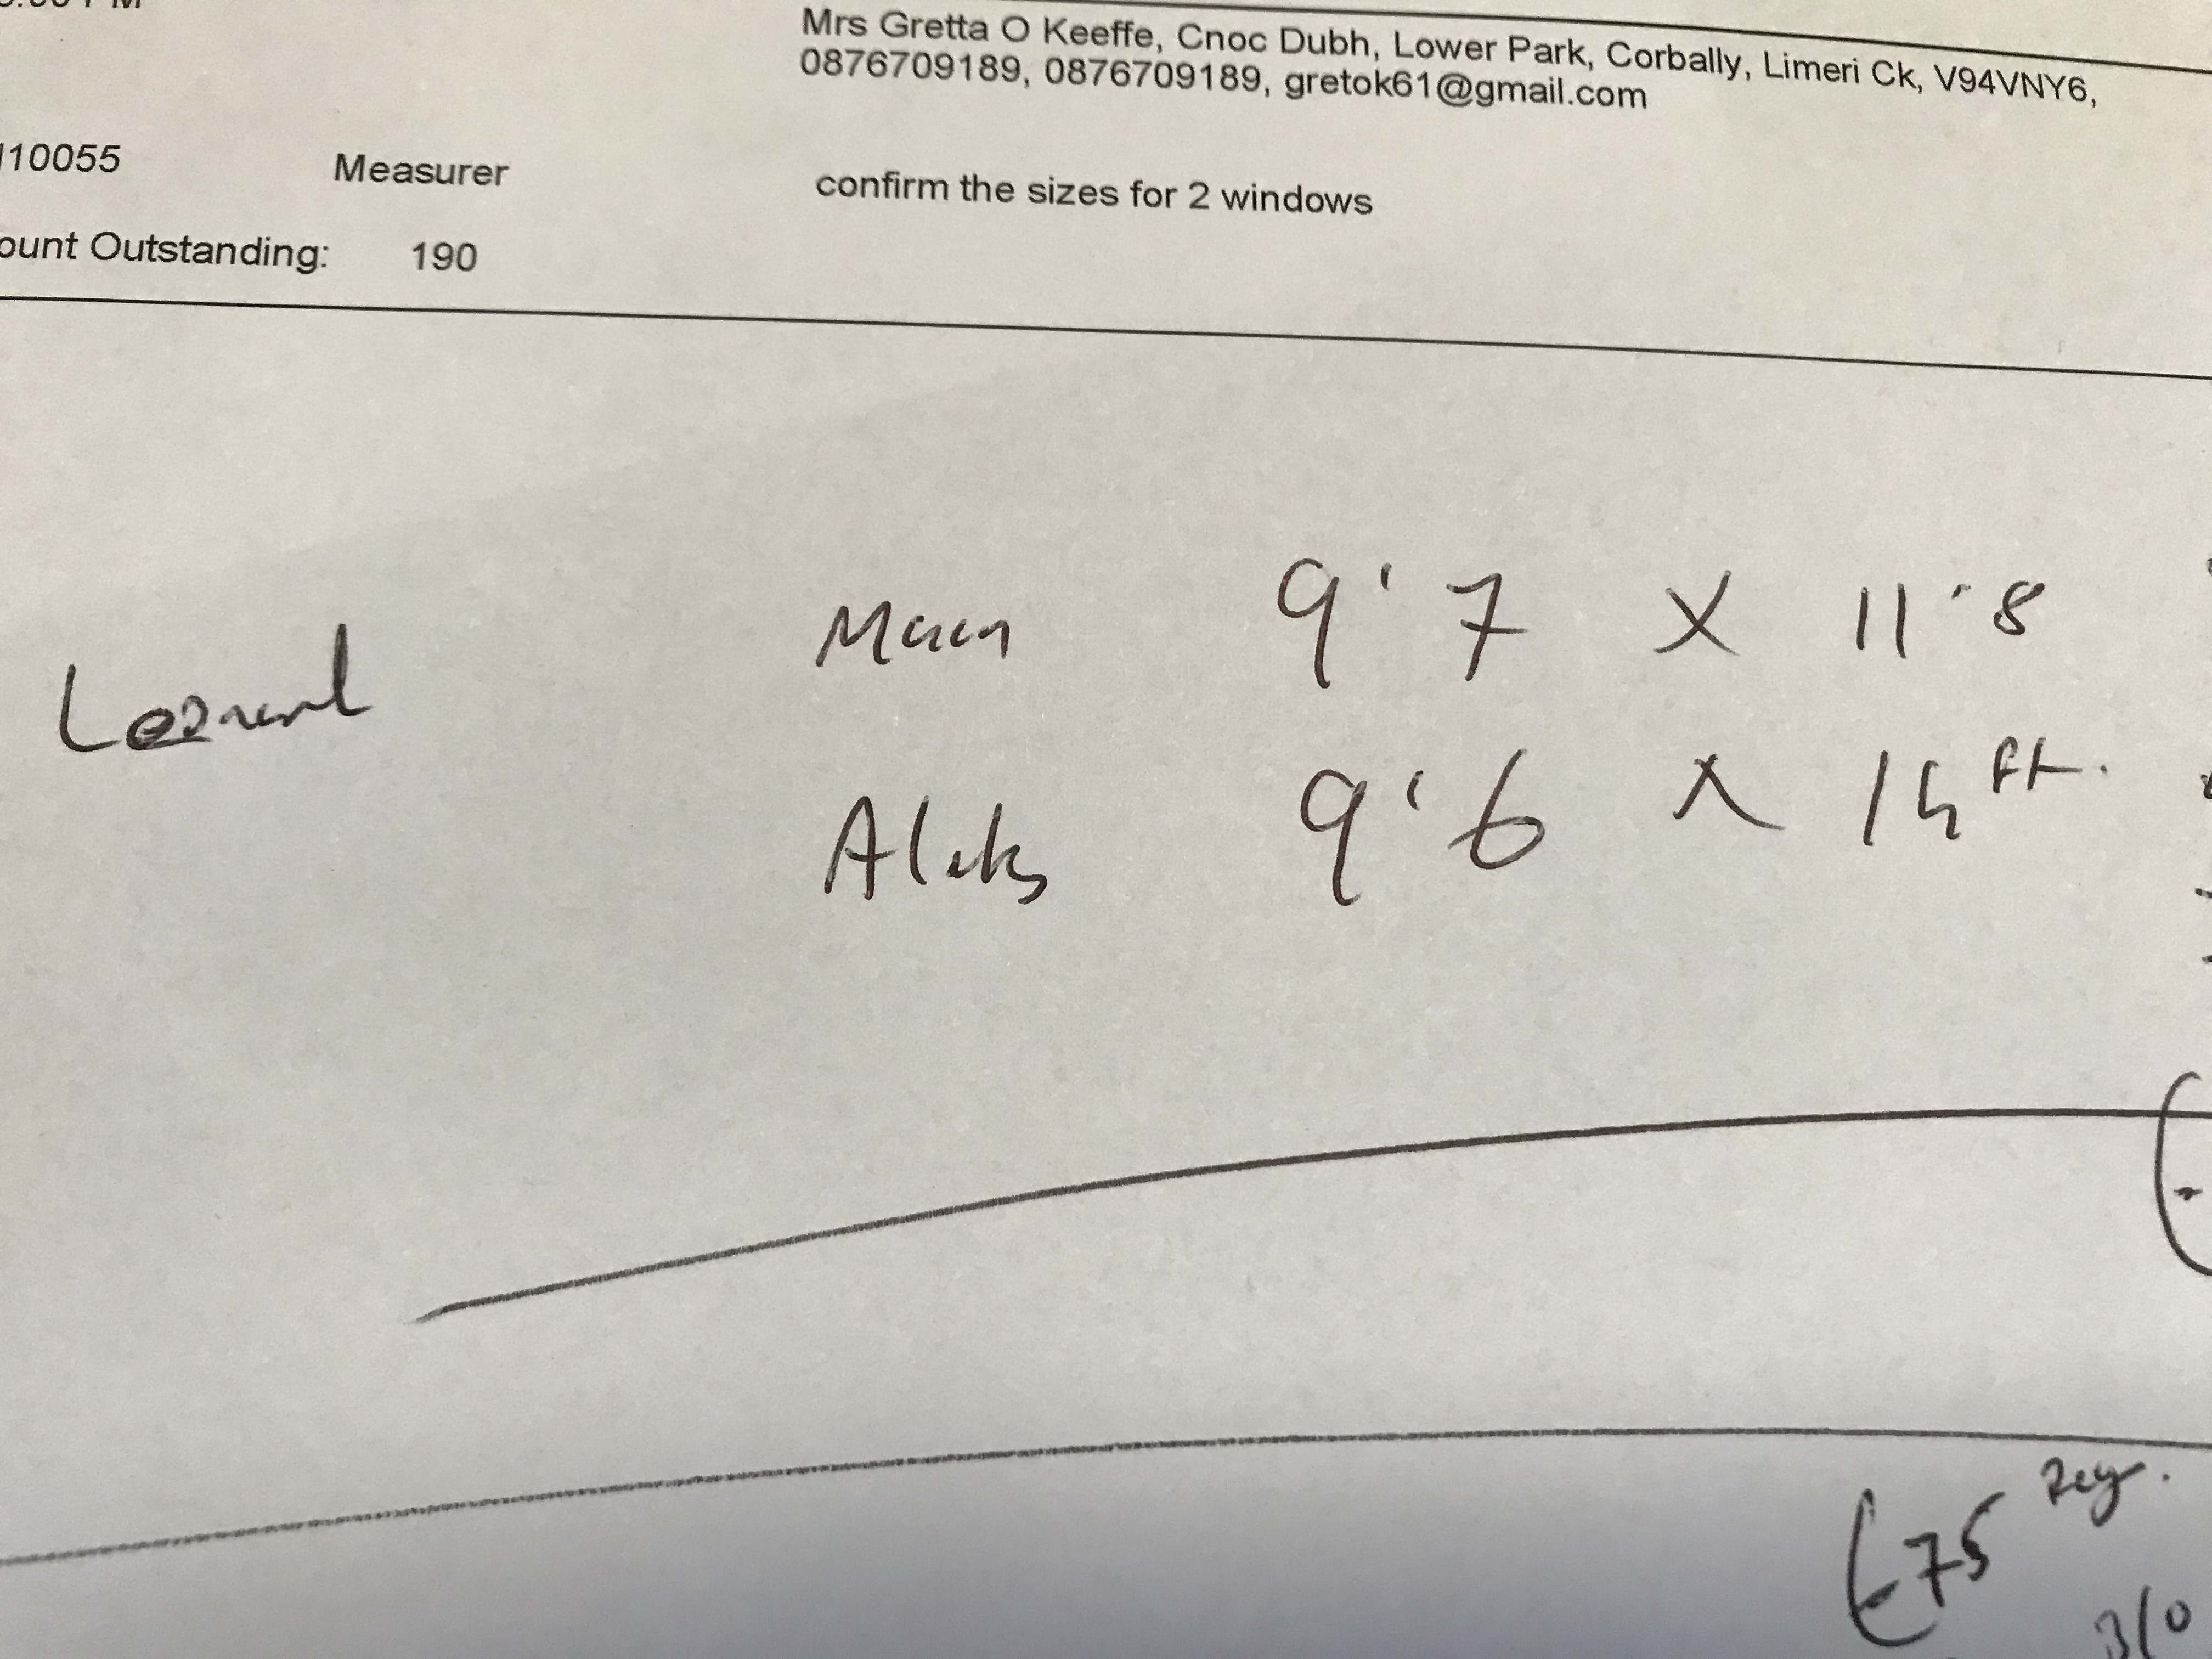 Mrs Gretta O Keeffe, Cnoc Dubh, Lower Park, Corbally, Limeri Ck, V94VNY6,
0876709189, 0876709189, gretok61@gmail.com
10055 Measurer confirm the sizes for 2 windows
ount Outstanding: 190
Main 9'7 x 11'8
Leonard
Aleks 9'6 x 14 ft.
€75
310